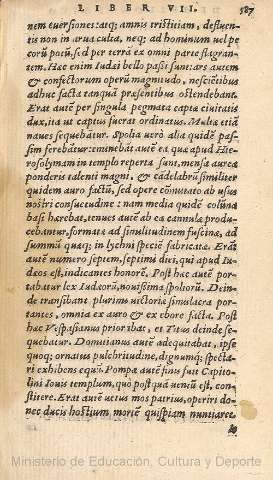 LIBER VII. 587
nem euersiones: atq; amnis tristitiam, defluen-
tis non in arua culta, neq; ad hominum uel pe
corũ potũ, sed per terrã ex omni parte flagran-
tem. Hæc enim Iudæi bello passi sunt: ars autem
& confectorum operũ magnitudo, nesciẽtibus
adhuc facta tanquã præsentibus ostendebant.
Erat autẽ per singula pegmata capta ciuitatis
dux, ita ut captus fuerat ordinatus. Multæ etiã
naues sequebãtur. Spolia uerò alia quidẽ pas-
sim ferebãtur: eminebãt autẽ ea quæ apud Hie-
rosolymam in templo reperta sunt, mensa aurea
ponderis talenti magni. & cãdelabrũ similiter
quidem auro factũ, sed opere cõmutato ab usus
nostri consuetudine: nam media quidẽ colũna
basi hærebat, tenues autẽ ab ea cannulæ produ-
cebantur, formatæ ad similitudinem fuscinæ, ad
summũ quæq; in lychni speciẽ fabricatæ. Erãt
autẽ numero septem, septimi diei, qui apud Iu-
dæos est, indicantes honorẽ. Post hæc autẽ por-
tabatur lex Iudæorũ, nouissima spoliorũ. Dein-
de transibant plurimi uictoriæ simulacra por-
tantes, omnia ex auro & ex ebore facta. Post
hæc Vespasianus prior ibat, et Titus deinde se-
quebatur. Domitianus autẽ adequitabat, ipse
quoq; ornatus pulchritudine, dignumq; specta-
ri exhibens equũ. Pompæ autẽ finis fuit Capito-
lini Iouis templum, quo postquã uentũ est, con-
stitere. Erat autẽ uetus mos patrius, operiri do-
nec ducis hostium mortẽ quispiam nuntiaret.
Ministerio de Educación, Cultura y Deporte